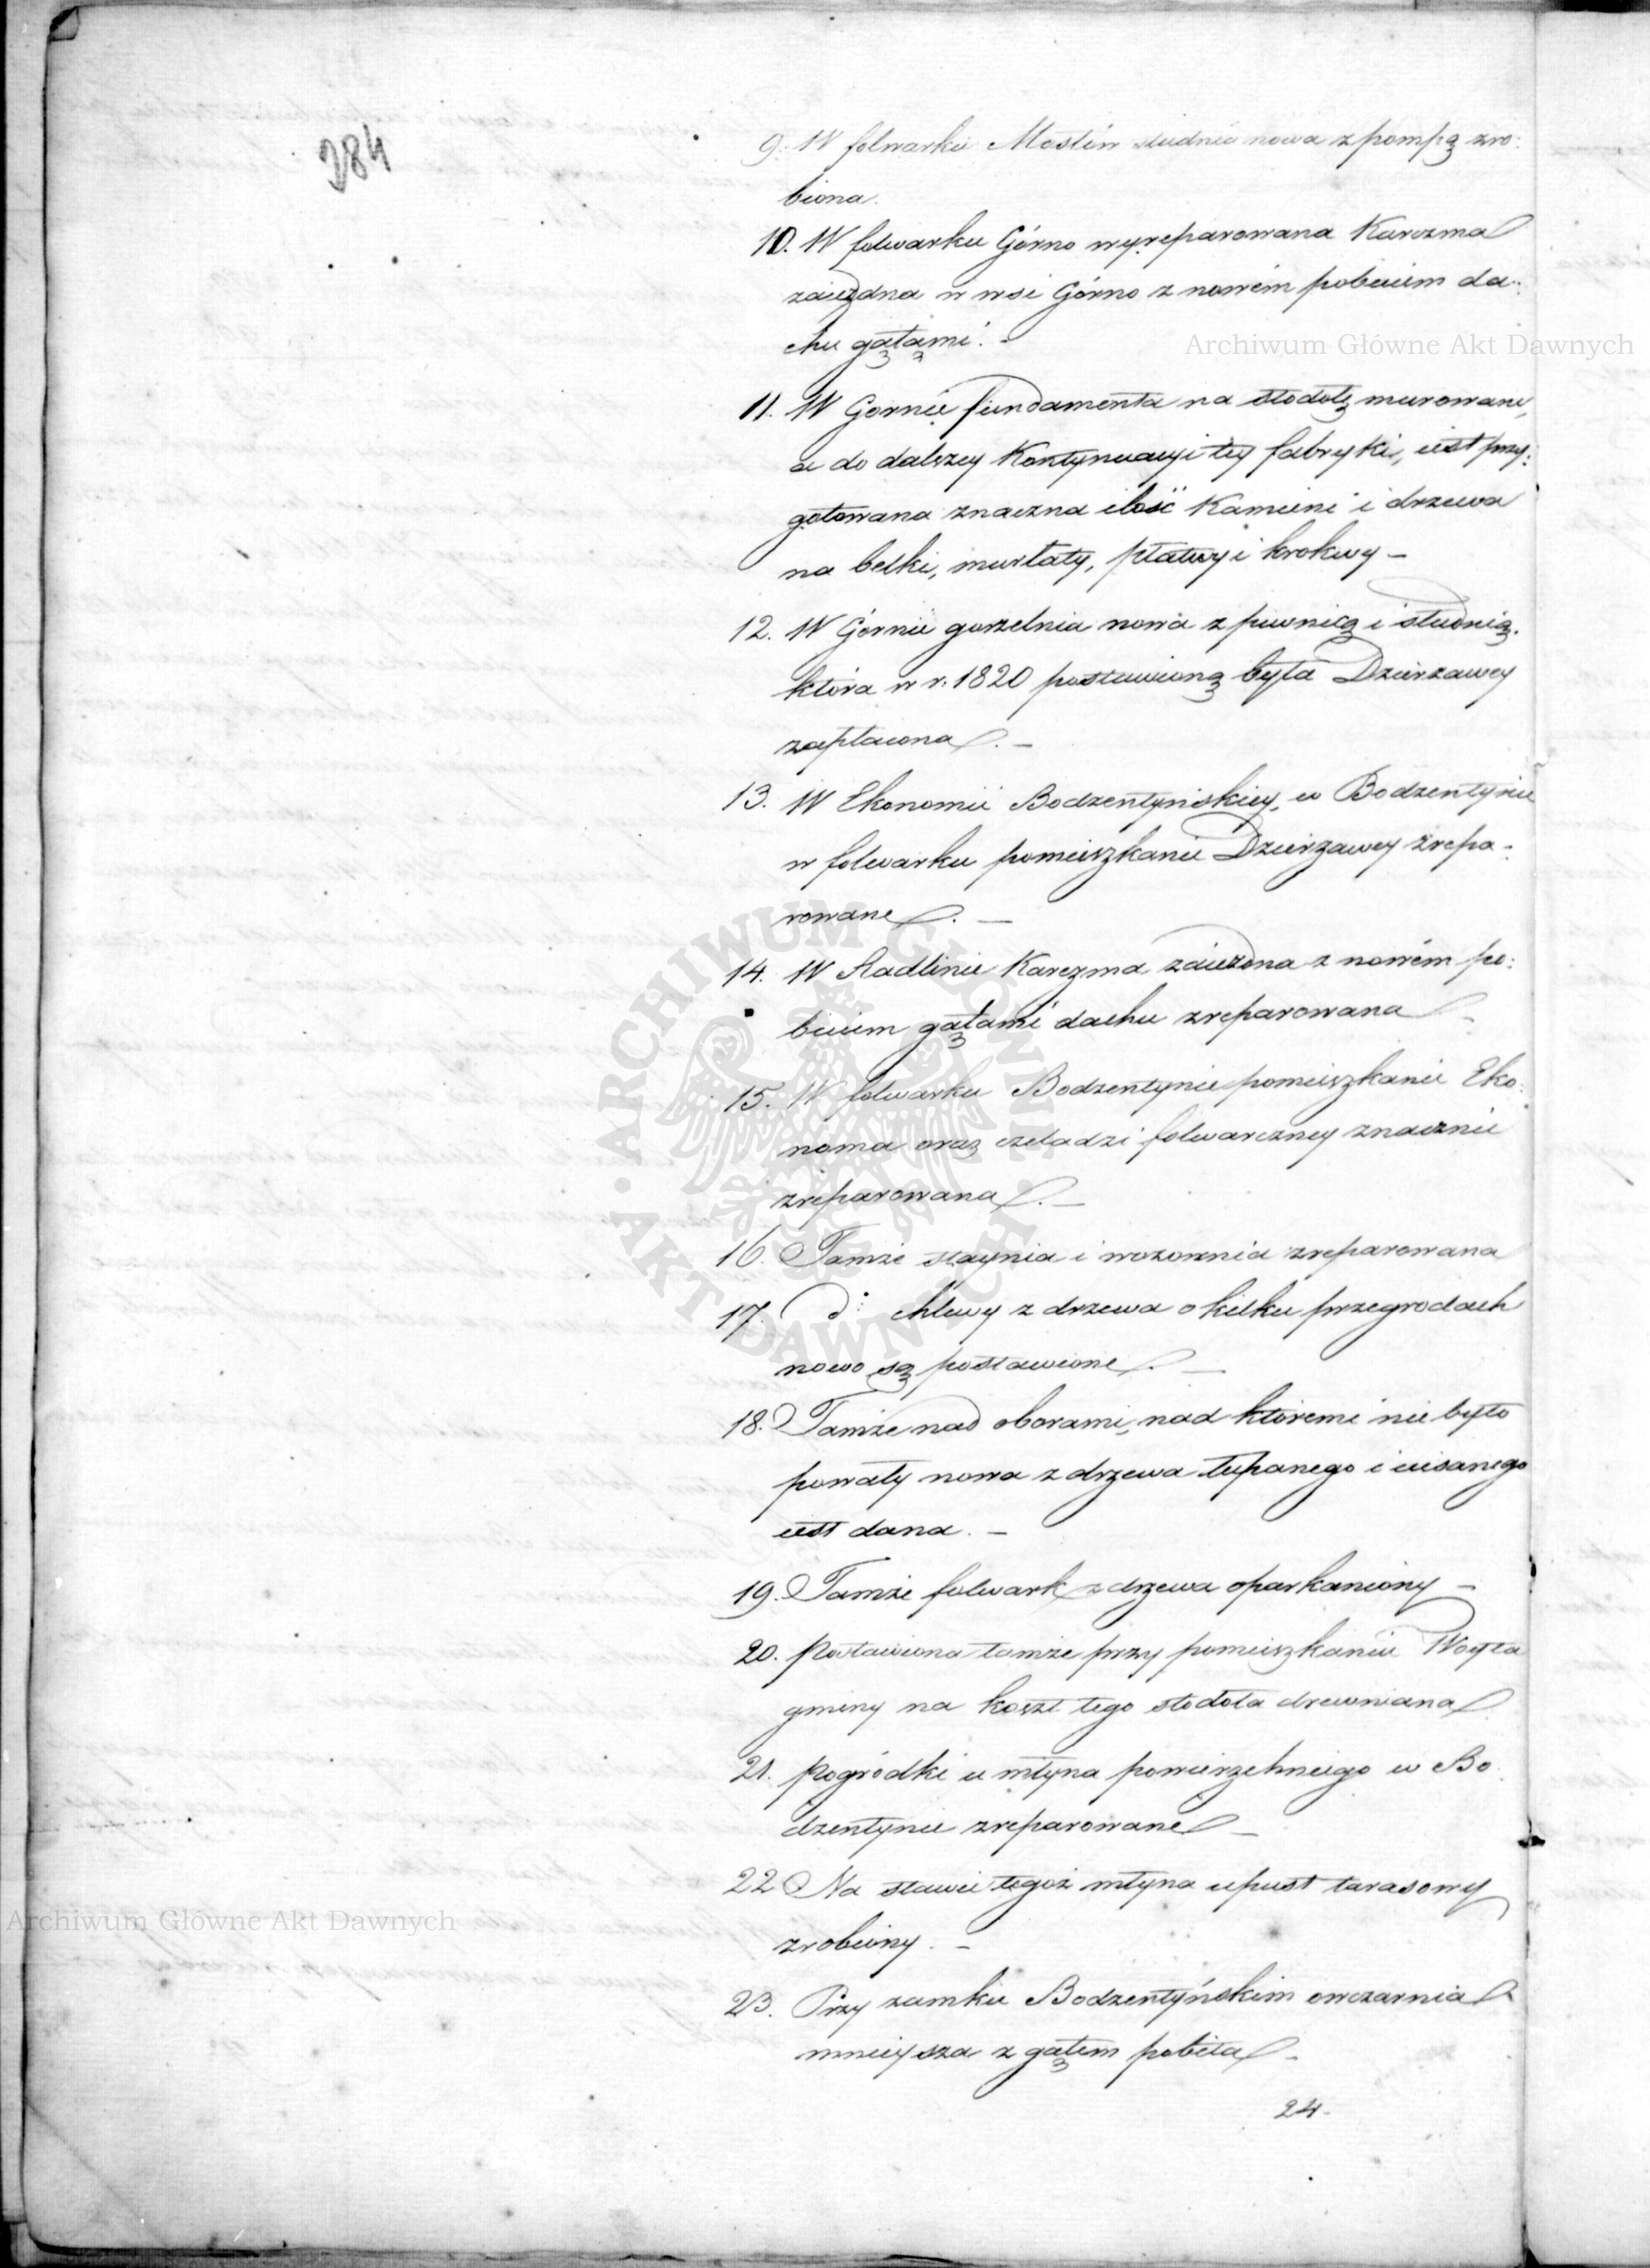 284
9. W folwarku Maslów studnia nowa z pompą zro:
biona.
10. W folwarku Górno wyreparowana Karczma
zaiezdna w wsi Górno z nowém pobiciem da:
chu gątami. -
Archiwum Główne Akt Dawnych
11. W Gornie fundamenta na stodołę murowane,
a do dalszey Kontynuacyi tey fabryki, iest przy:
gotowana znaczna ilość Kamieni i drzewa
na belki, murłaty, płatwy i krokwy -
12. W Górnie gorzelnia nowa z piwnicą i studnią,
która w r. 1820 postawioną była Dzierżawcy
zapłacona. -
13. W Ekonomii Bodzentyńskiey, w Bodzentynie
w folwarku pomieszkanie Dzierżawcy zrepa -
rowane. -
14. W Radlinie Karczma zaiezdna z nowém po:
biciem gątami dachu zreparowana -
15. W folwarku Bodzentynie pomieszkanie Eko:
noma oraz czeladzi folwarczney znacznie
zreparowana. -
16. Tamże staynia i wozownia zreparowana
17. do: chlewy z drzewa o kilku przegrodach
nowo są postawione. -
18. Tamże nad oborami, nad któremi nie było
powały nowa z drzewa łupanego i ciosanego
iest dana. -
19. Tamże folwark z drzewa oparkaniony -
20. Postawiona tamże przy pomieszkaniu Woyta
gminy na koszt tego stodoła drewniana
21. Pogródki u młyna powierzchniego w Bo:
dzentynie zreparowane -
22 Na stawie tegoż młyna upust tarasowy
Archiwum Główne Akt Dawnych
zrobiony. -
23. Przy zamku Bodzentyńskim owczarnia
mnieysza z gątem pobita -
24.
ARCHIWUM GŁÓWNE AKT DAWNYCH